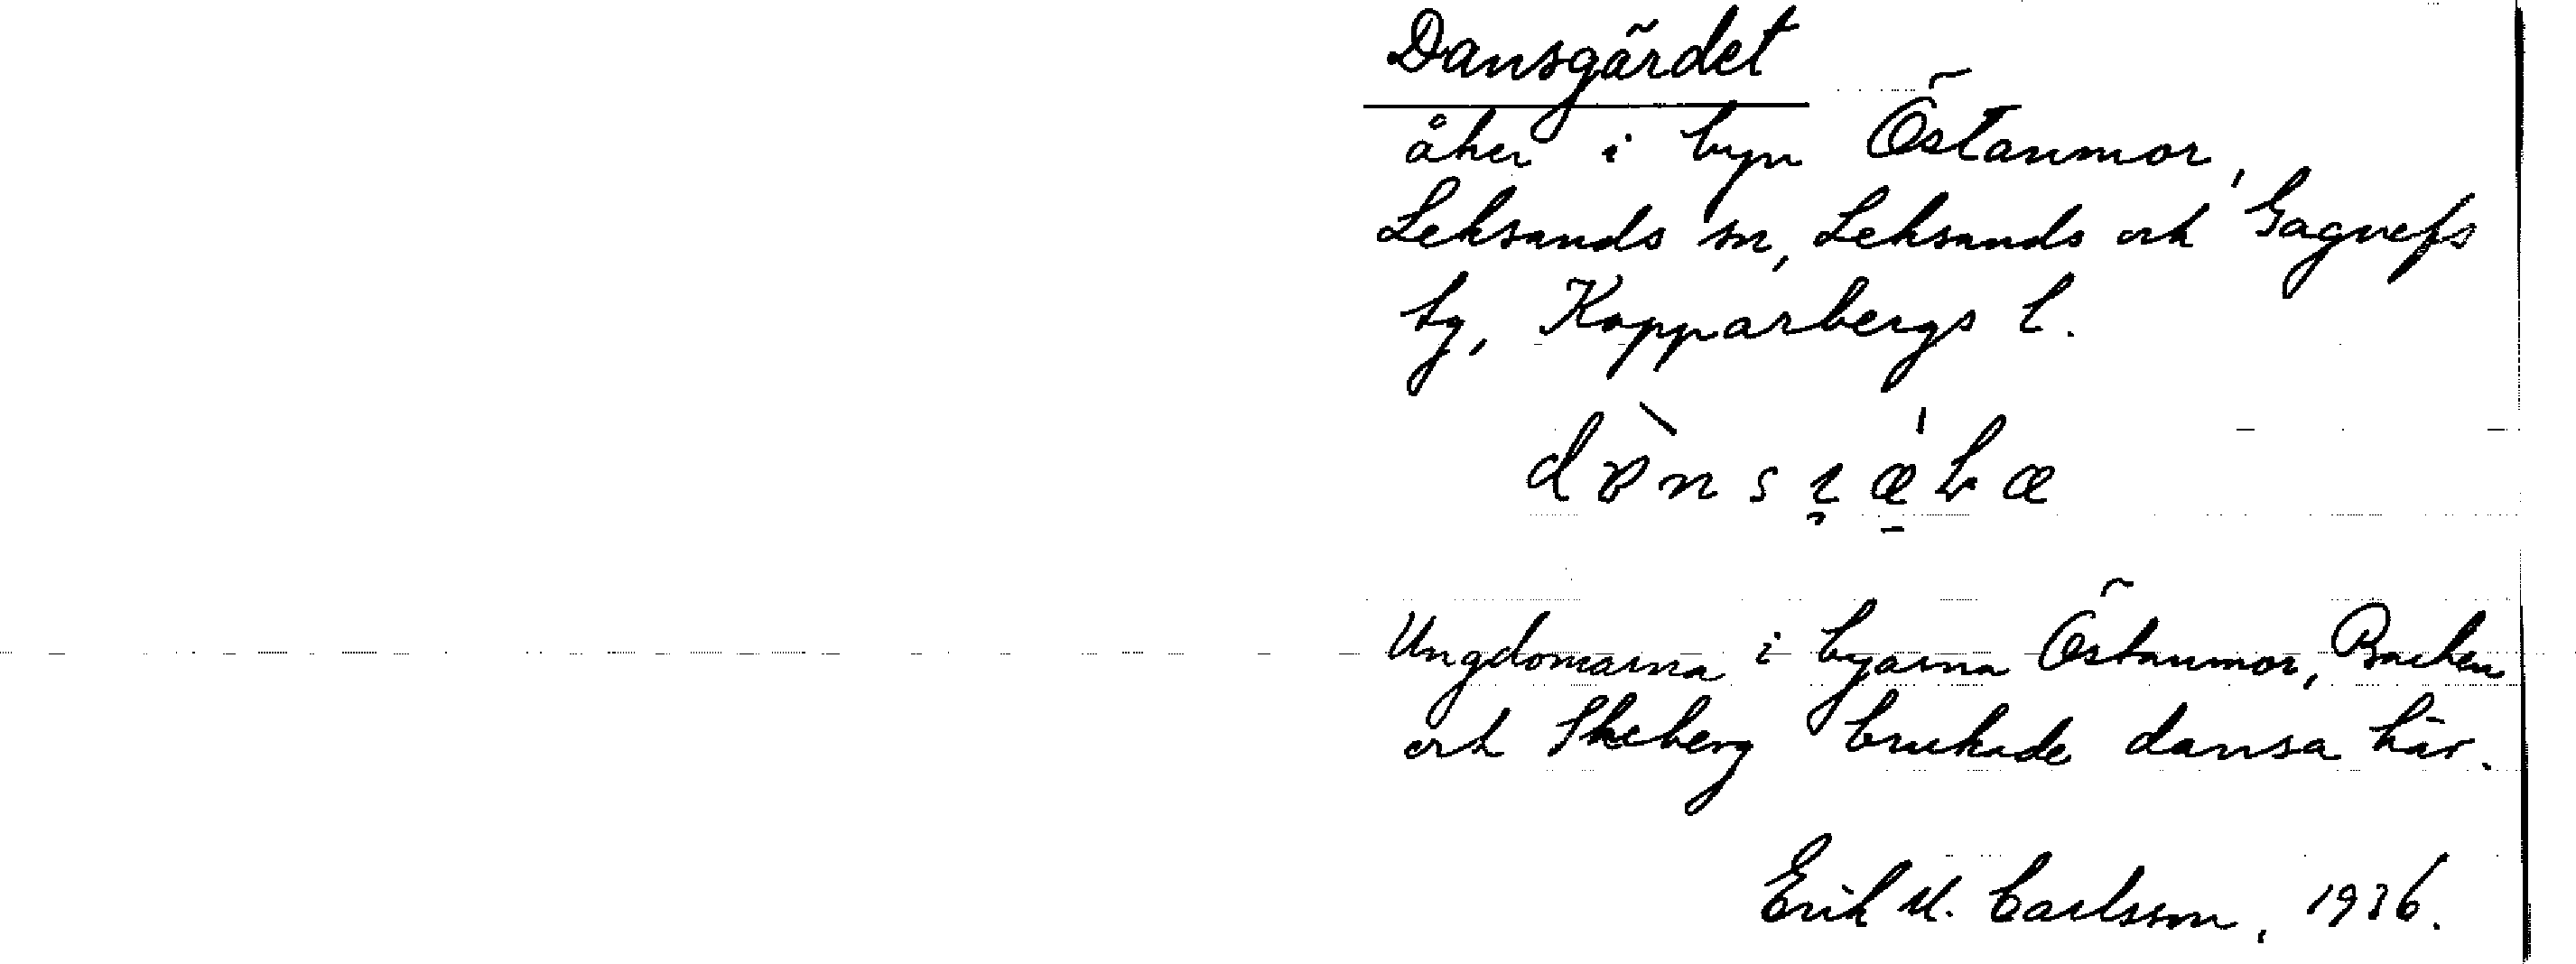 Dansgärdet
åker i byn Östanmor,
Leksands sn, Leksands och Gagnefs
tg, Kopparbergs l.
Ungdomarna i byarna Östanmor, Backen
och Skeberg brukade dansa här.
Erik U. Carlsson, 1936.